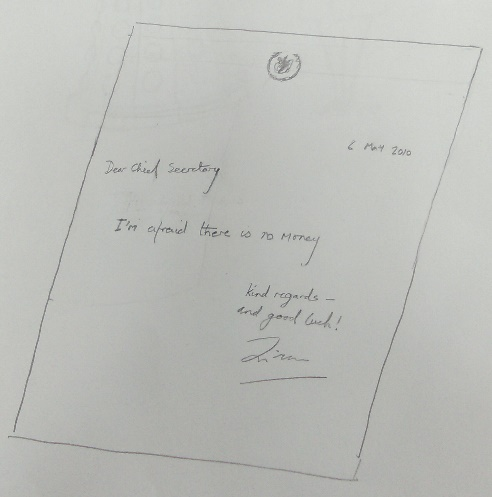 6 May 2010
Dear Chief Secretary
I'm afraid there is no money
kind regards –
and good luck!